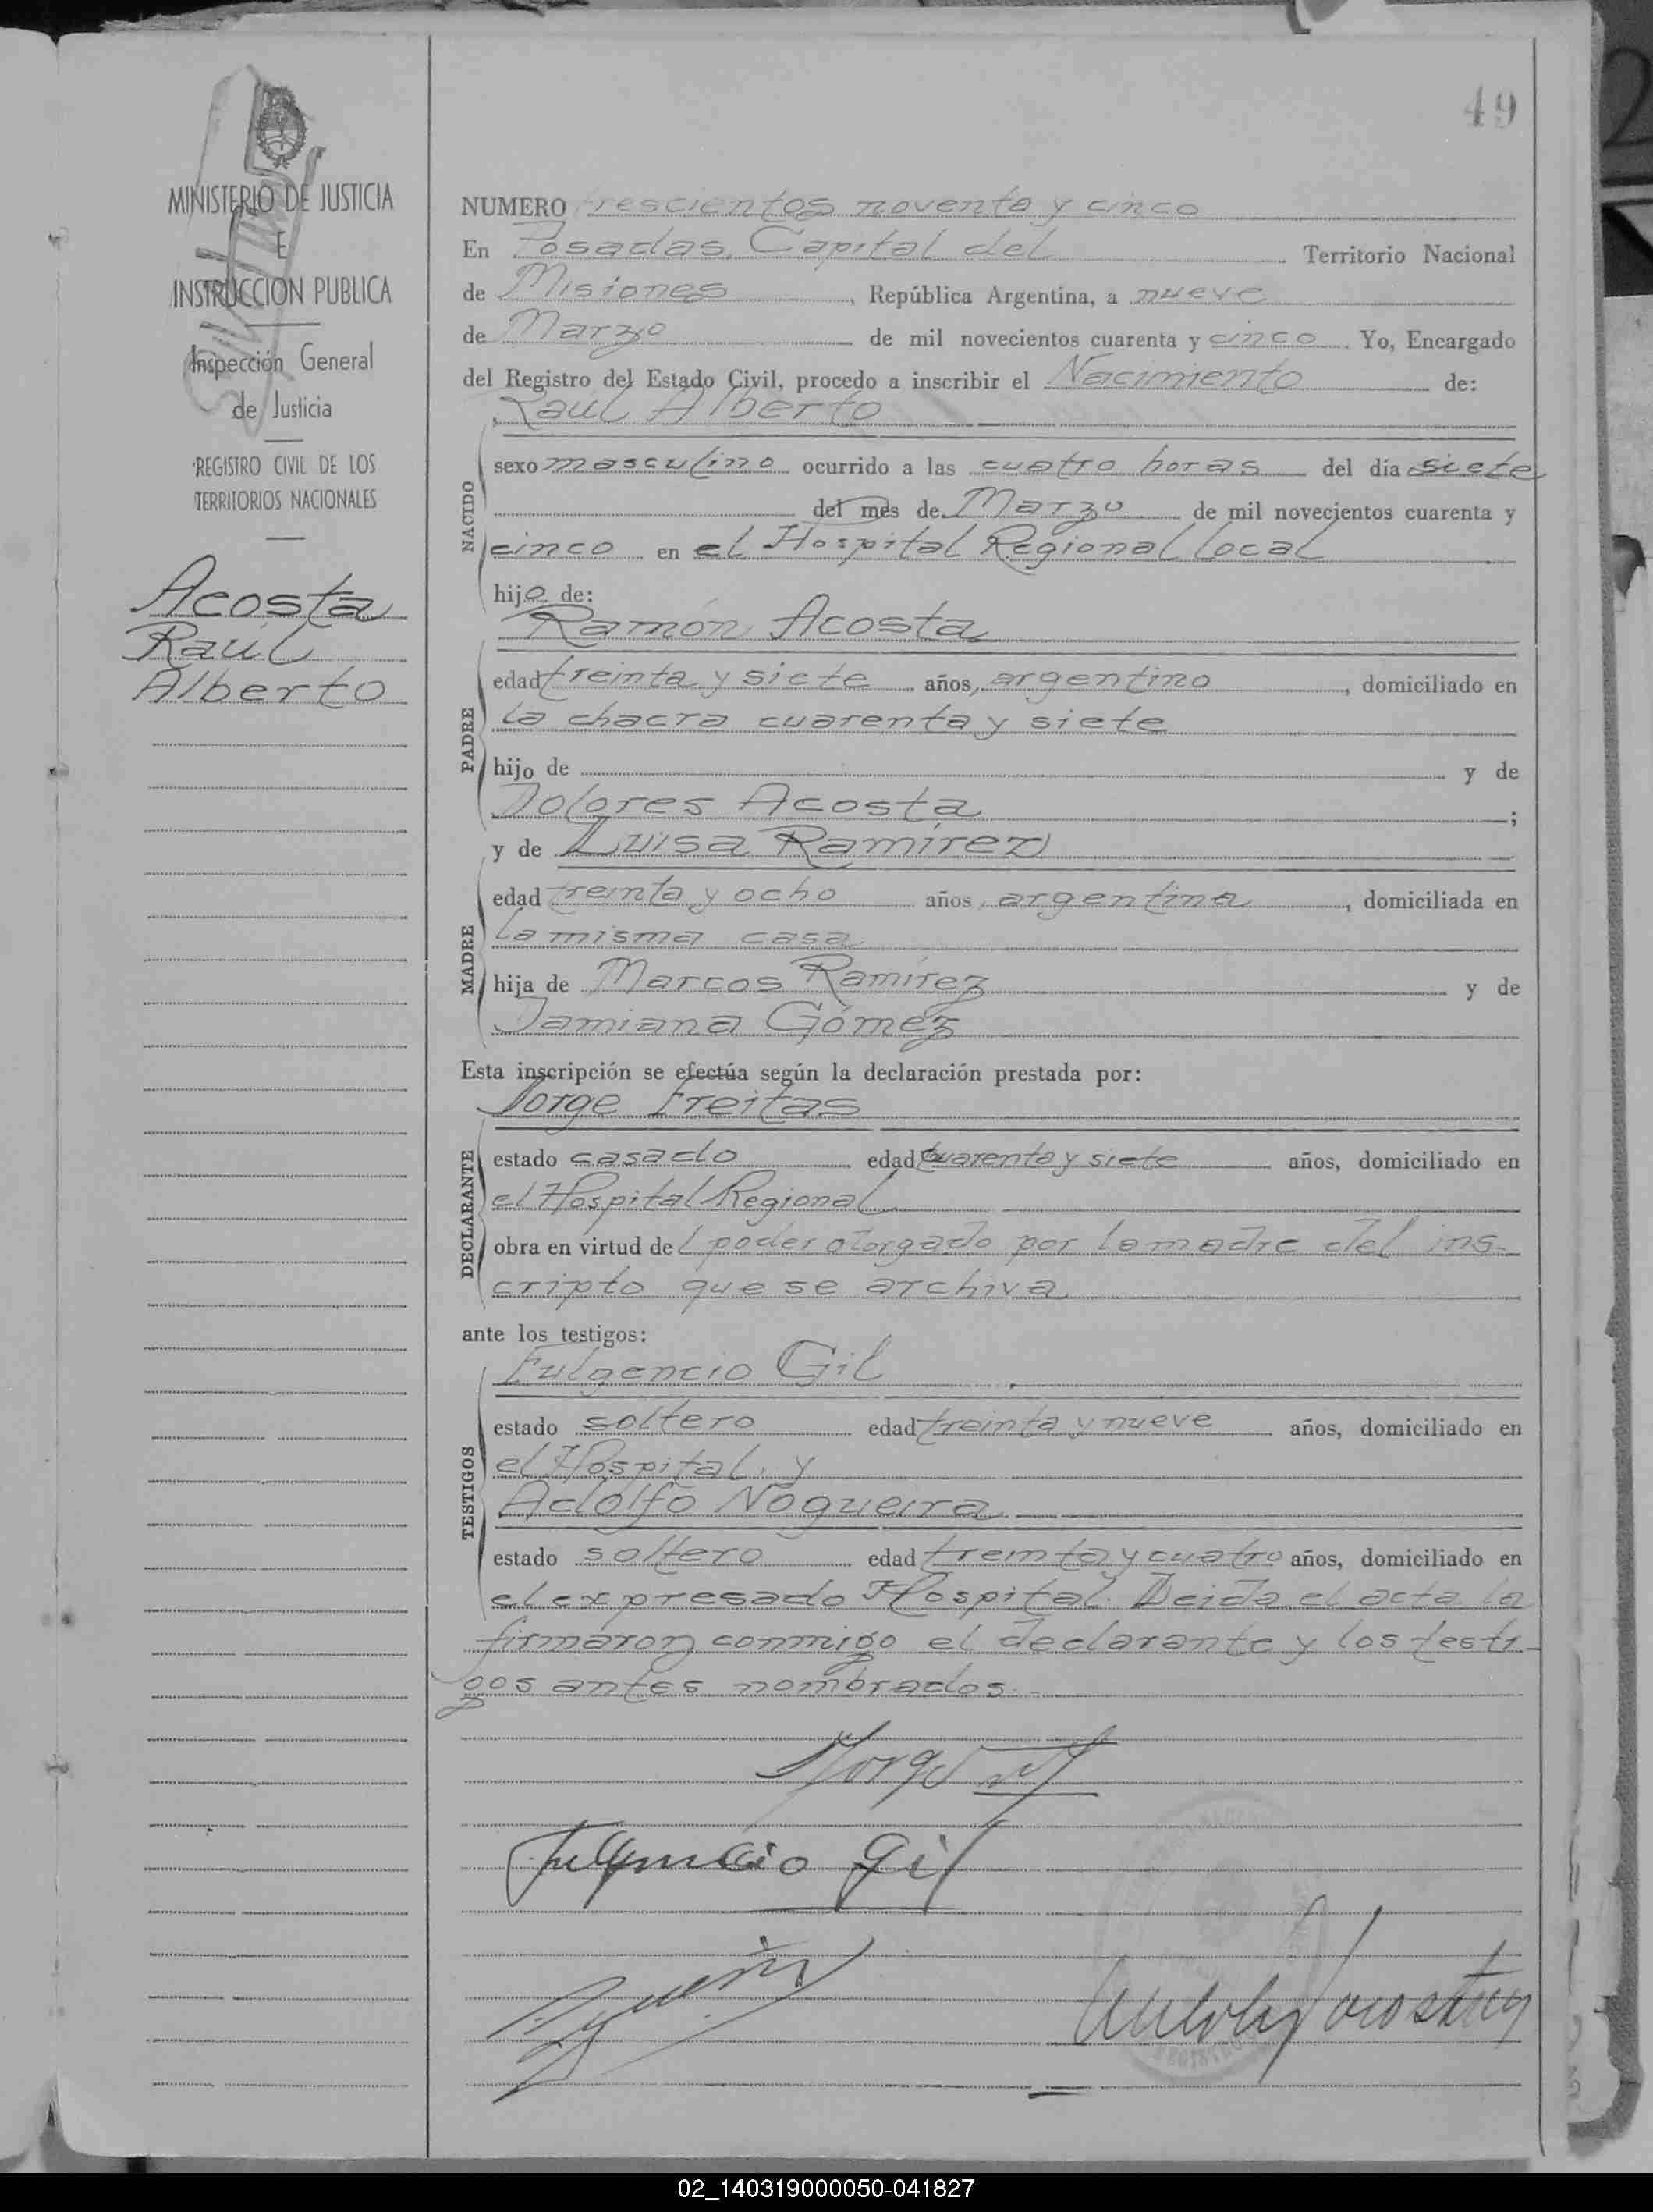 49
MINISTERIO DE JUSTICIA
E
INSTRUCCION PUBLICA
Inspección General
de Justicia
REGISTRO CIVIL DE LOS
TERRITORIOS NACIONALES
Acosta
Raúl
Alberto
NUMERO trescientos noventa y cinco
En Posadas, Capital del Territorio Nacional
de Misiones, República Argentina, a nueve
de Marzo de mil novecientos cuarenta y cinco Yo, Encargado
del Registro del Estado Civil, procedo a inscribir el Nacimiento de:
Raúl Alberto
NACIDO
sexo masculino ocurrido a las cuatro horas del día siete
del mes de Marzo de mil novecientos cuarenta y
cinco en el Hospital Regional local
hijo de:
Ramón Acosta
PADRE
edad treinta y siete años, argentino, domiciliado en
la chacra cuarenta y siete
hijo de y de
Dolores Acosta ;
y de Luisa Ramírez
MADRE
edad treinta y ocho años, argentina, domiciliada en
la misma casa
hija de Marcos Ramírez y de
Damiana Gómez
Esta inscripción se efectúa según la declaración prestada por:
Jorge Freitas
DECLARANTE
estado casado edad cuarenta y siete años, domiciliado en
el Hospital Regional
obra en virtud del poder otorgado por la madre del ins-
cripto que se archiva
ante los testigos:
Fulgencio Gil
TESTIGOS
estado soltero edad treinta y nueve años, domiciliado en
el Hospital, y
Adolfo Nogueira
estado soltero edad treinta y cuatro años, domiciliado en
el expresado Hospital. Leida el acta la
firmaron conmigo el declarante y los testi-
gos antes nombrados.-
Jorge
Fulgencio Gil
02_140319000050-041827